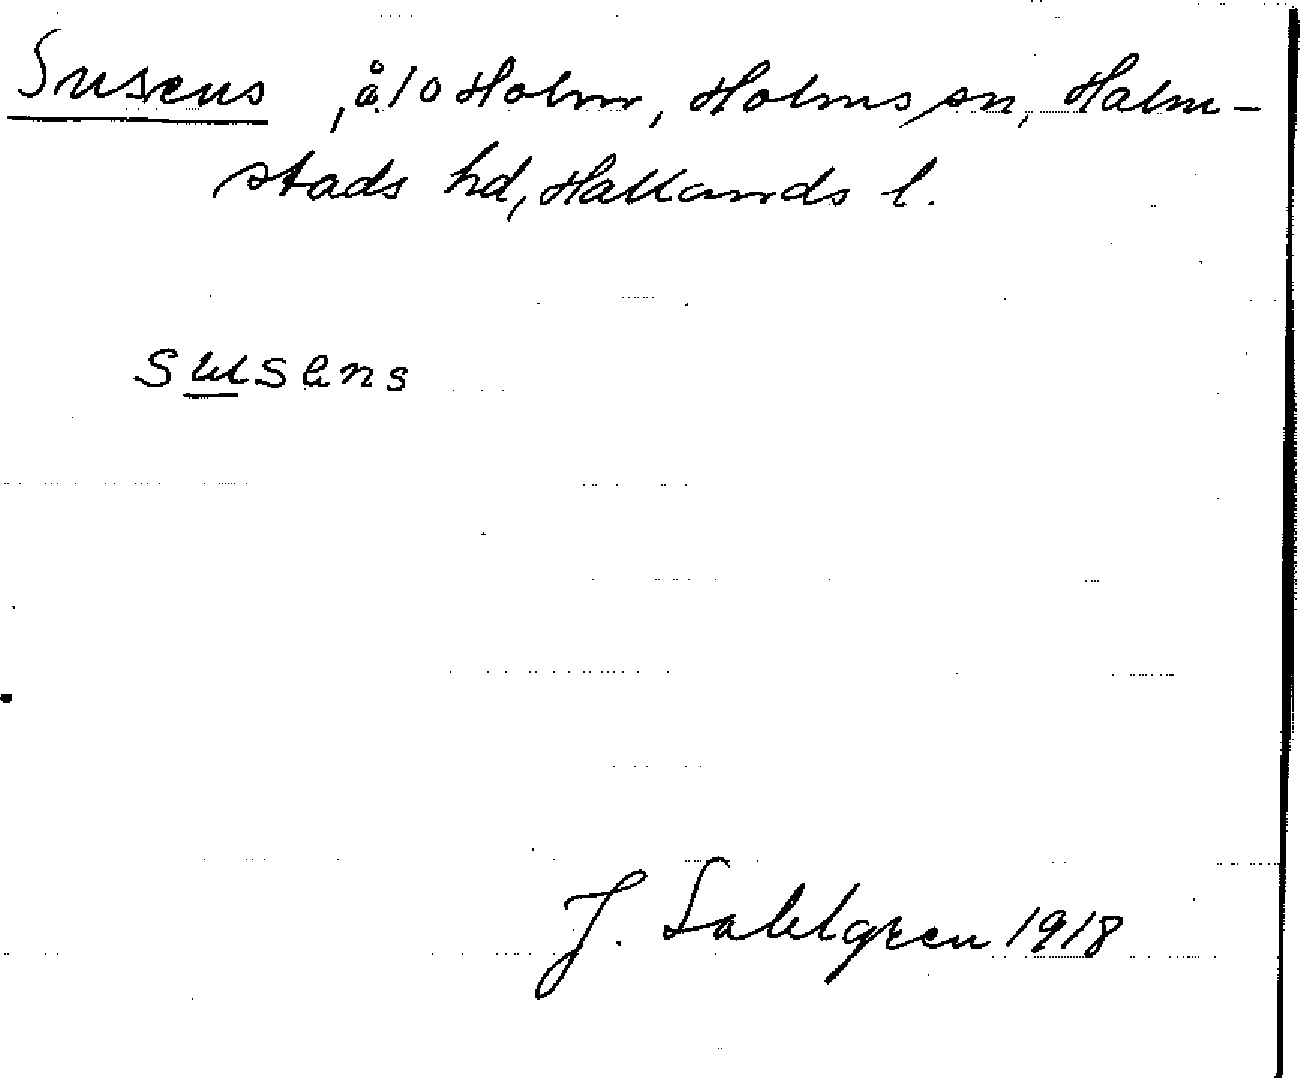 Susens , å/o Holm, Holms sn, Halm-
stads hd, Hallands l.
susens
J. Sahlgren 1918